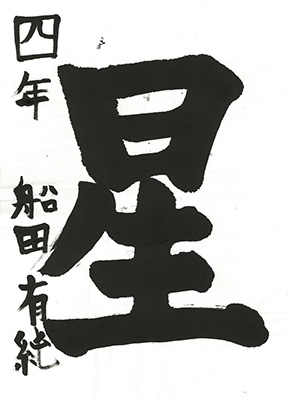 星
四年 船田有純